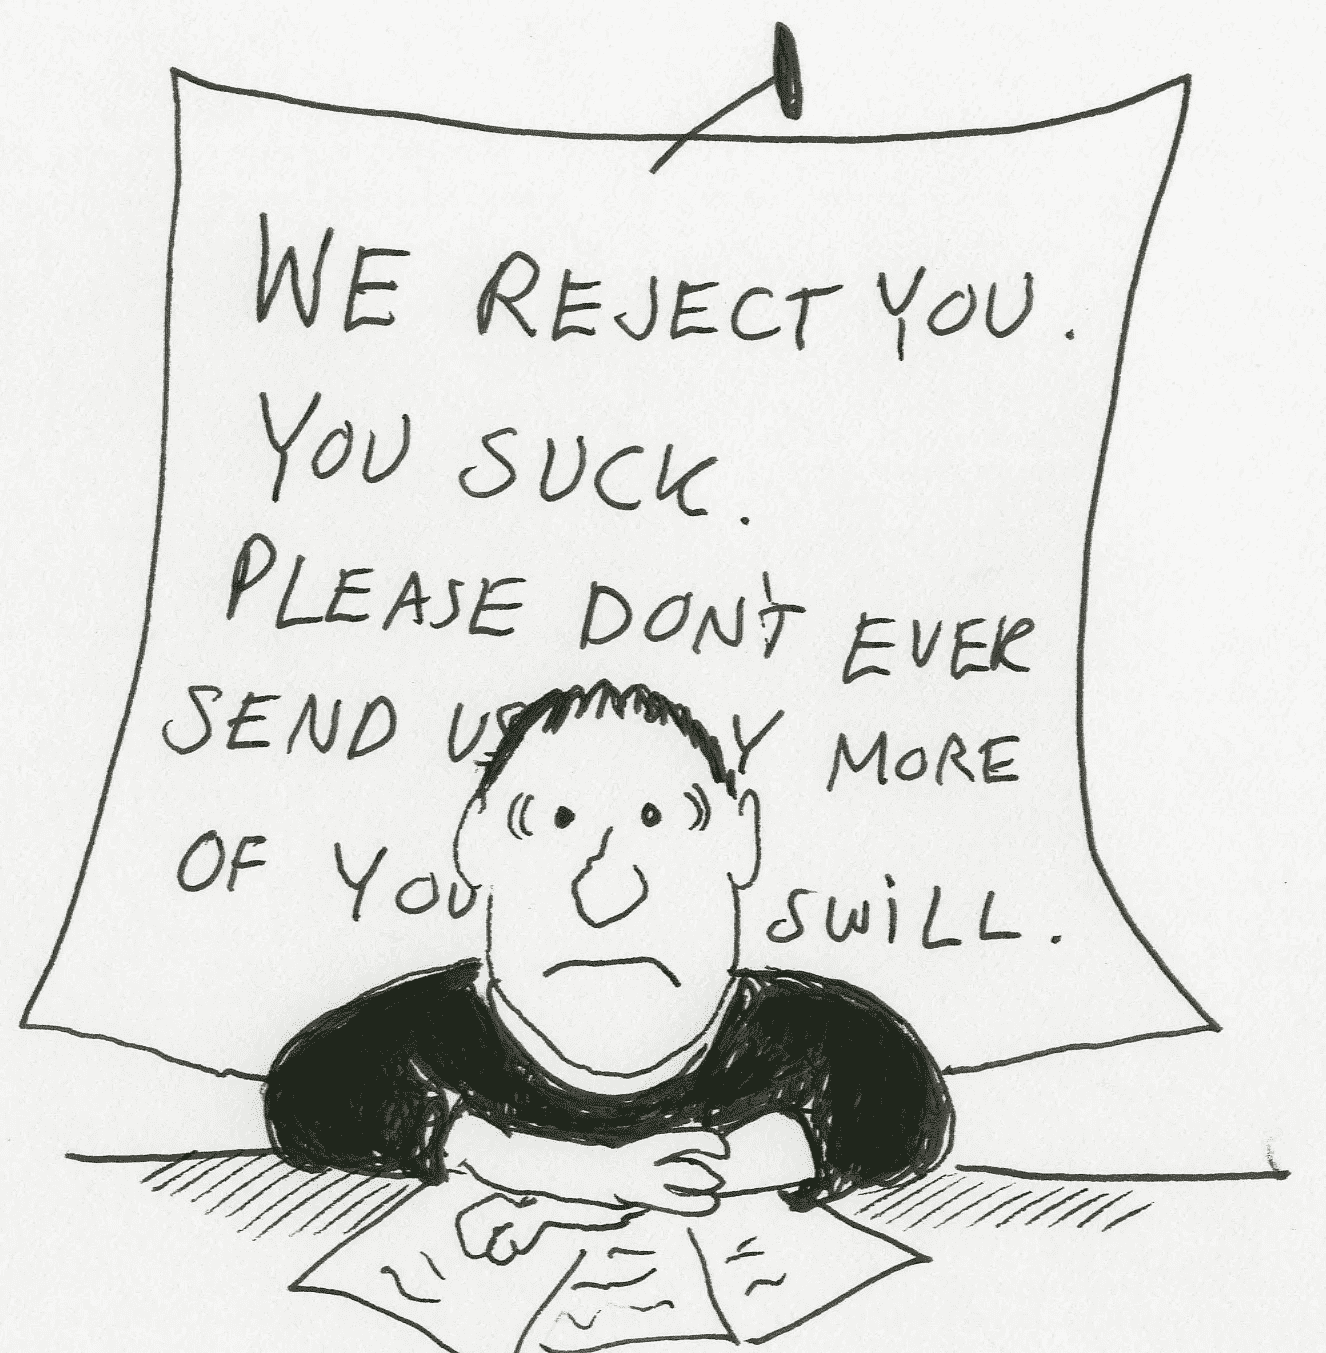 WE REJECT YOU.
YOU SUCK.
PLEASE DON'T EVER
SEND US Y MORE
OF YOU SWiLL.